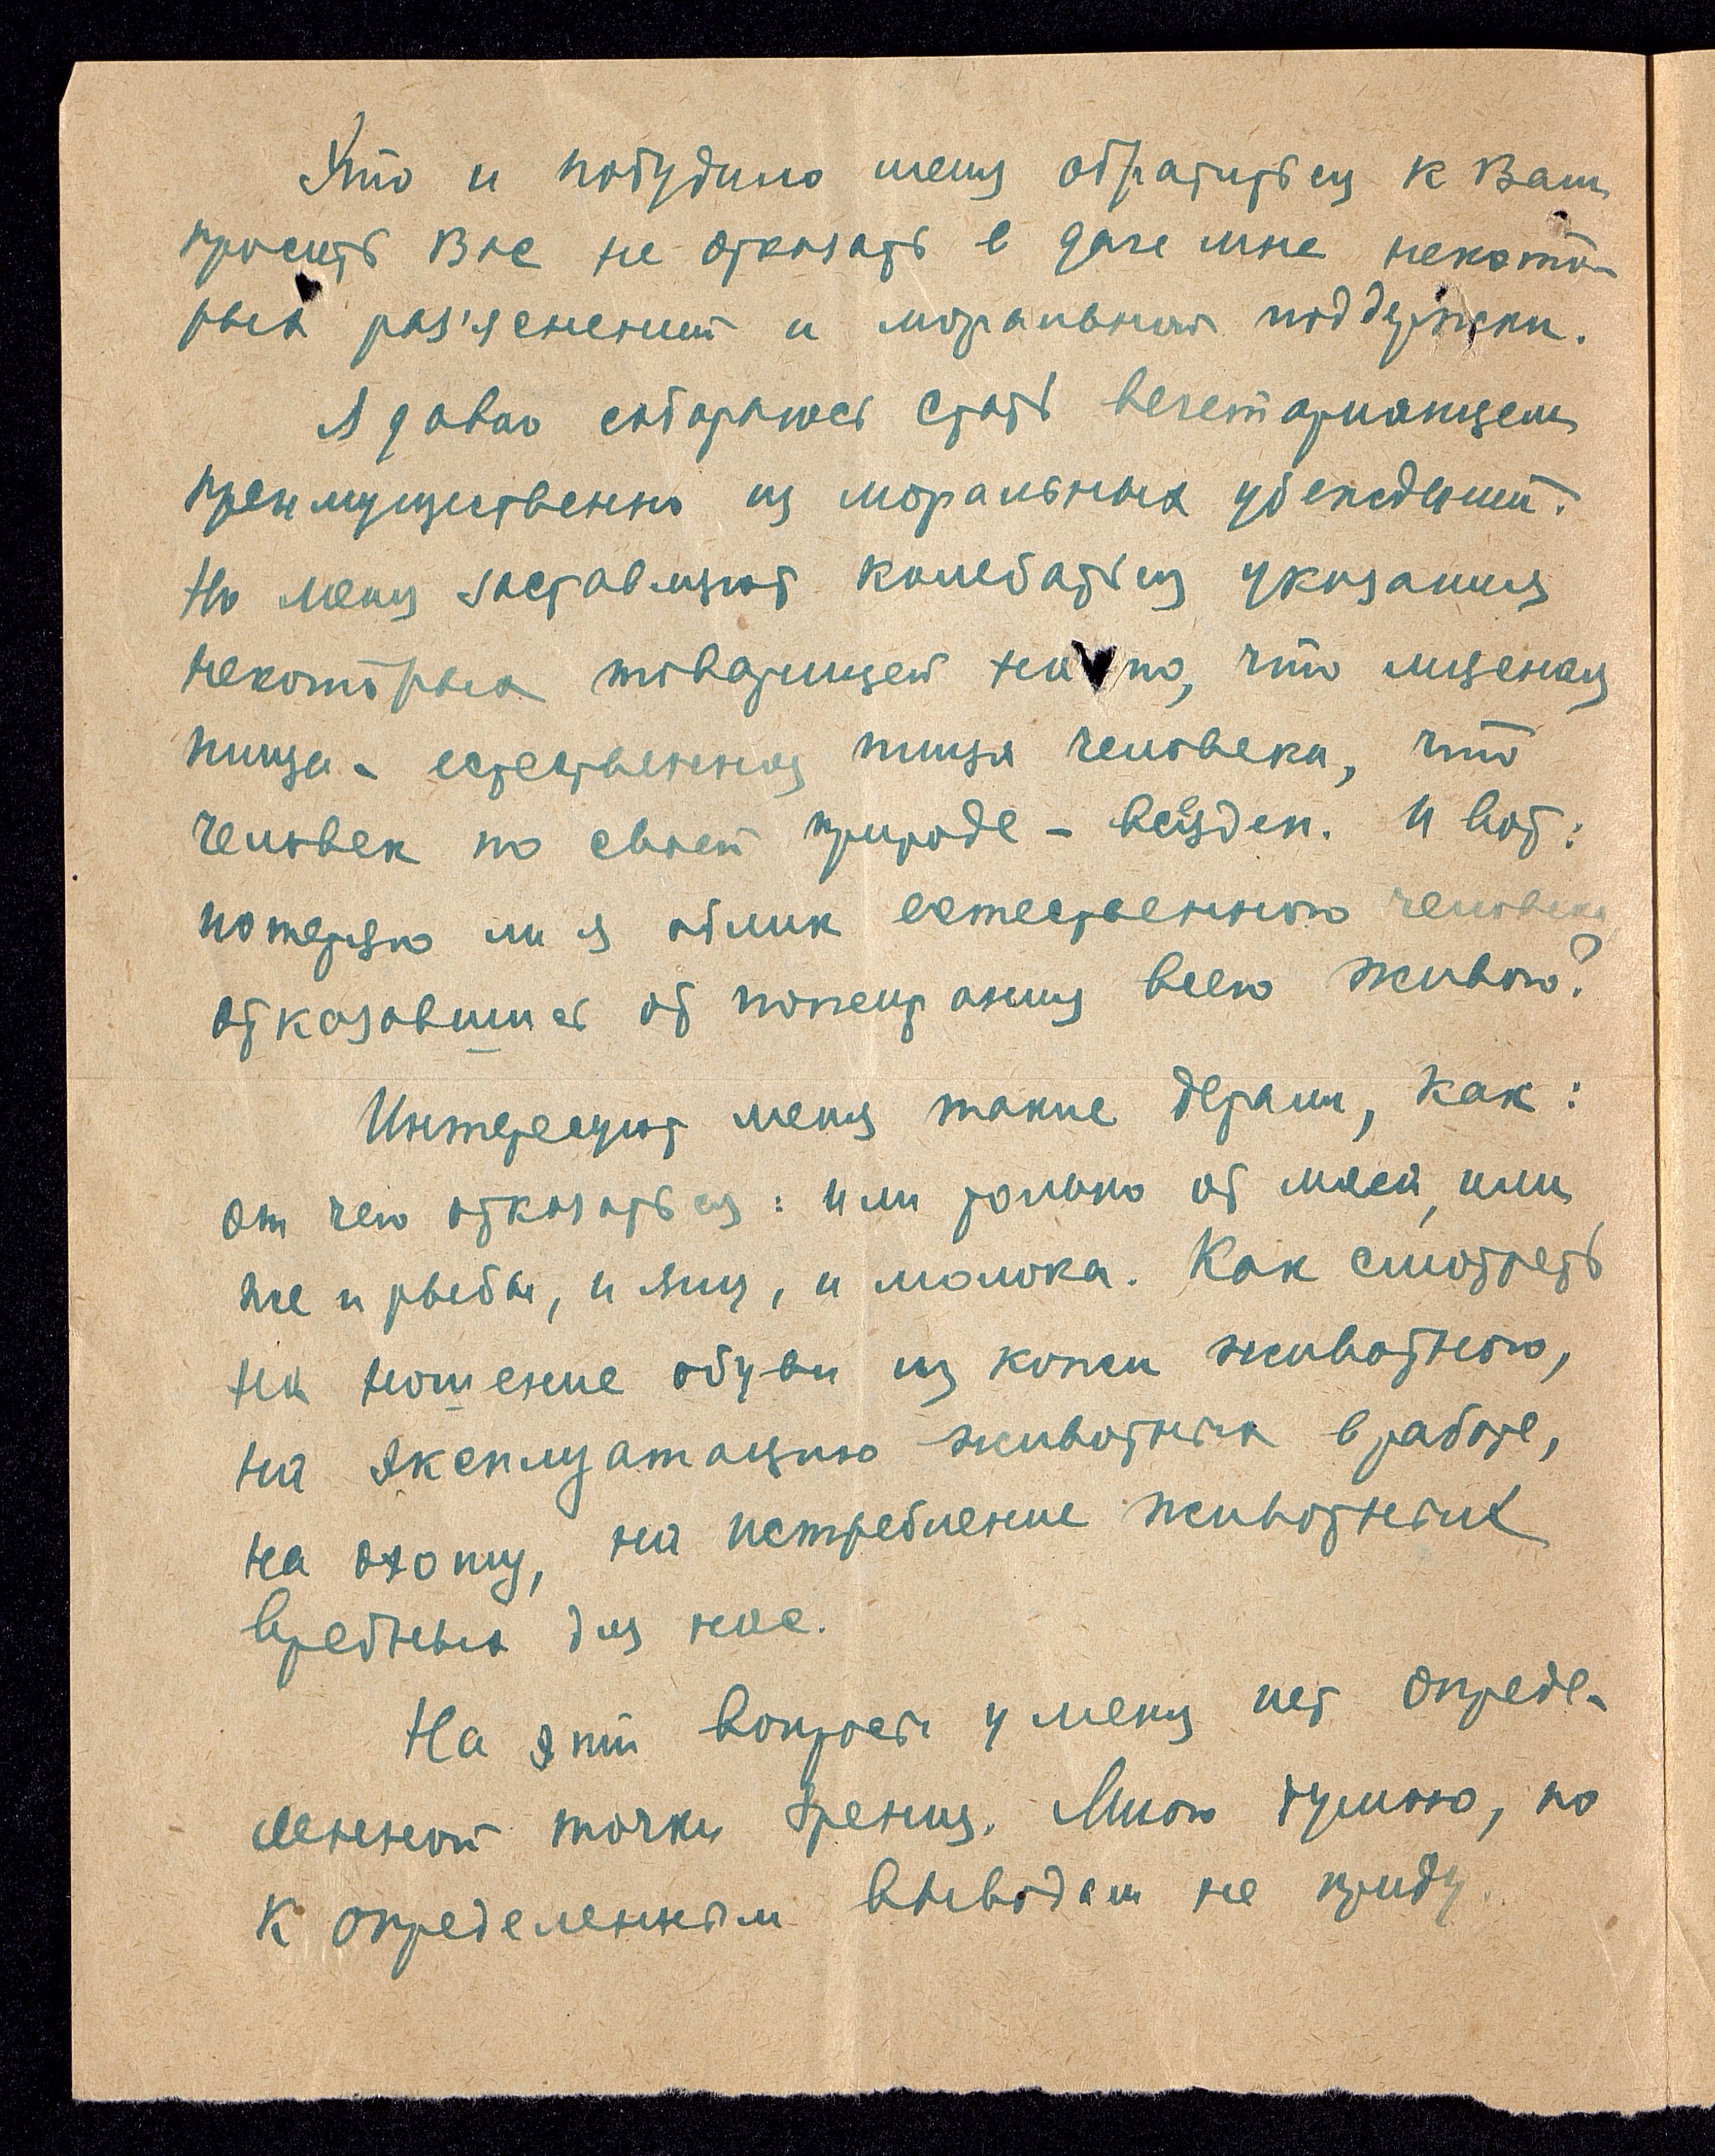 Это и побудило меня обратиться к Вам
просить Вас не отказать в даче мне некото-
рых раз'яснений и моральной поддержки.
Я давно собираюсь стать вегетарианцем
преимущественно из моральных убеждений.
Но меня заставляют колебаться указания
некоторых товарищей на то, что мясная
пища - естественная пища человека, что
человек по своей природе - всеяден. И вот:
потеряю ли я облик естественного человека
отказавшись от пожирания всего живого?
Интересуют меня такие детали, как:
от чего отказаться: или только от мяса, или
же и рыбы, и яиц, и молока. Как смотреть
на ношение обуви из кожи животного,
на эксплуатацию животных в работе,
на охоту, на истребление животных
вредных для нас.
На эти вопросы у меня нет опреде-
ленной точки зрения. Много думаю, но
к определенным выводам не приду.